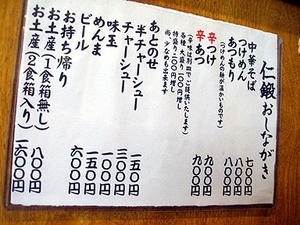 仁鍛おしながき
中華そば 七〇〇
つけめん 八〇〇
あつもり 八〇〇
(つけめんの麺が温かいものです)
辛つけ 九〇〇
辛あつ 九〇〇
(辛味は別皿でご提供いたします)
各種 大盛り 一〇〇円増し
特盛り 二〇〇円増し
尚、少なめも出来ます
あとのせ
半チャーシュー 一五〇
チャーシュー 三〇〇
味玉 一〇〇
めんま 一五〇
ビール 六〇〇
お持ち帰り
お土産(1食箱無し) 八〇〇
お土産(2食箱入り) 一六〇〇